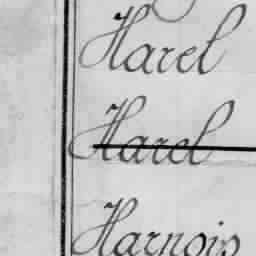 Harel
Harel
Harnois